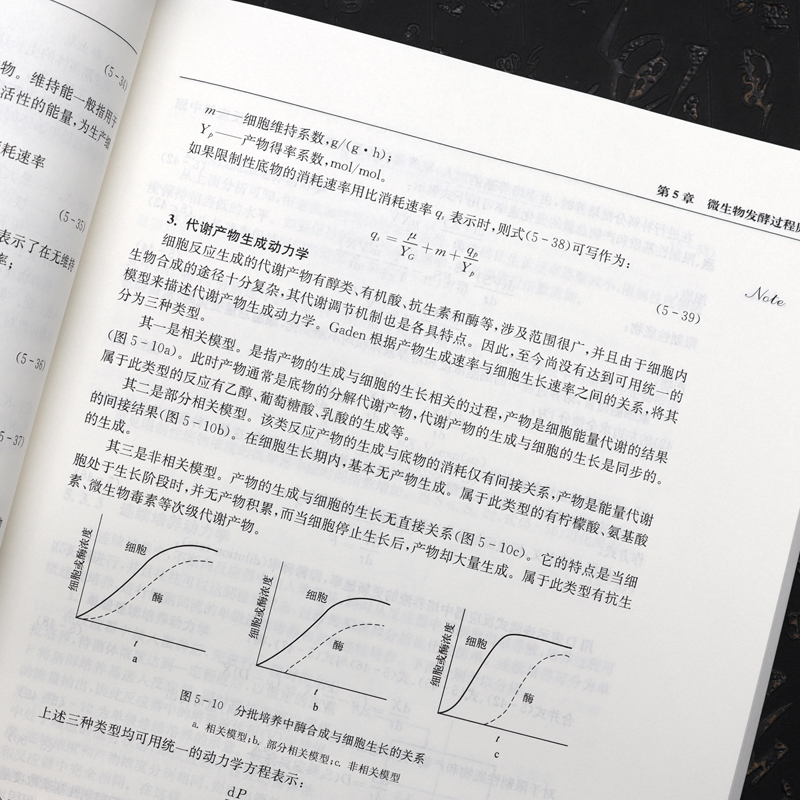 (5-34)
物。维持能一般指用于
活性的能量,为生产组
耗速率
(5-35)
表示了在无维持
率;
(5-36)
5-37)
第5章 微生物发酵过程
Note
m——细胞维持系数,g/(g·h);
Y_p——产物得率系数,mol/mol。
如果限制性底物的消耗速率用比消耗速率 q_s 表示时,则式(5-38)可写作为:
q_s = μ/Y_G + m + q_p/Y_p
(5-39)
3. 代谢产物生成动力学
细胞反应生成的代谢产物有醇类、有机酸、抗生素和酶等,涉及范围很广,并且由于细胞内
生物合成的途径十分复杂,其代谢调节机制也是各具特点。因此,至今尚没有达到可用统一的
模型来描述代谢产物生成动力学。Gaden根据产物生成速率与细胞生长速率之间的关系,将其
分为三种类型。
其一是相关模型。是指产物的生成与细胞的生长相关的过程,产物是细胞能量代谢的结果
(图5-10a)。此时产物通常是底物的分解代谢产物,代谢产物的生成与细胞的生长是同步的。
属于此类型的反应有乙醇、葡萄糖酸、乳酸的生成等。
其二是部分相关模型。该类反应产物的生成与底物的消耗仅有间接关系,产物是能量代谢
的间接结果(图5-10b)。在细胞生长期内,基本无产物生成。属于此类型的有柠檬酸、氨基酸
的生成。
其三是非相关模型。产物的生成与细胞的生长无直接关系(图5-10c)。它的特点是当细
胞处于生长阶段时,并无产物积累,而当细胞停止生长后,产物却大量生成。属于此类型有抗生
素、微生物毒素等次级代谢产物。
细胞或酶浓度
细胞
t
a
细胞或酶浓度
细胞
酶
t
b
细胞或酶浓度
细胞
酶
t
c
图5-10 分批培养中酶合成与细胞生长的关系
a. 相关模型;b. 部分相关模型;c. 非相关模型
上述三种类型均可用统一的动力学方程表示:
dP